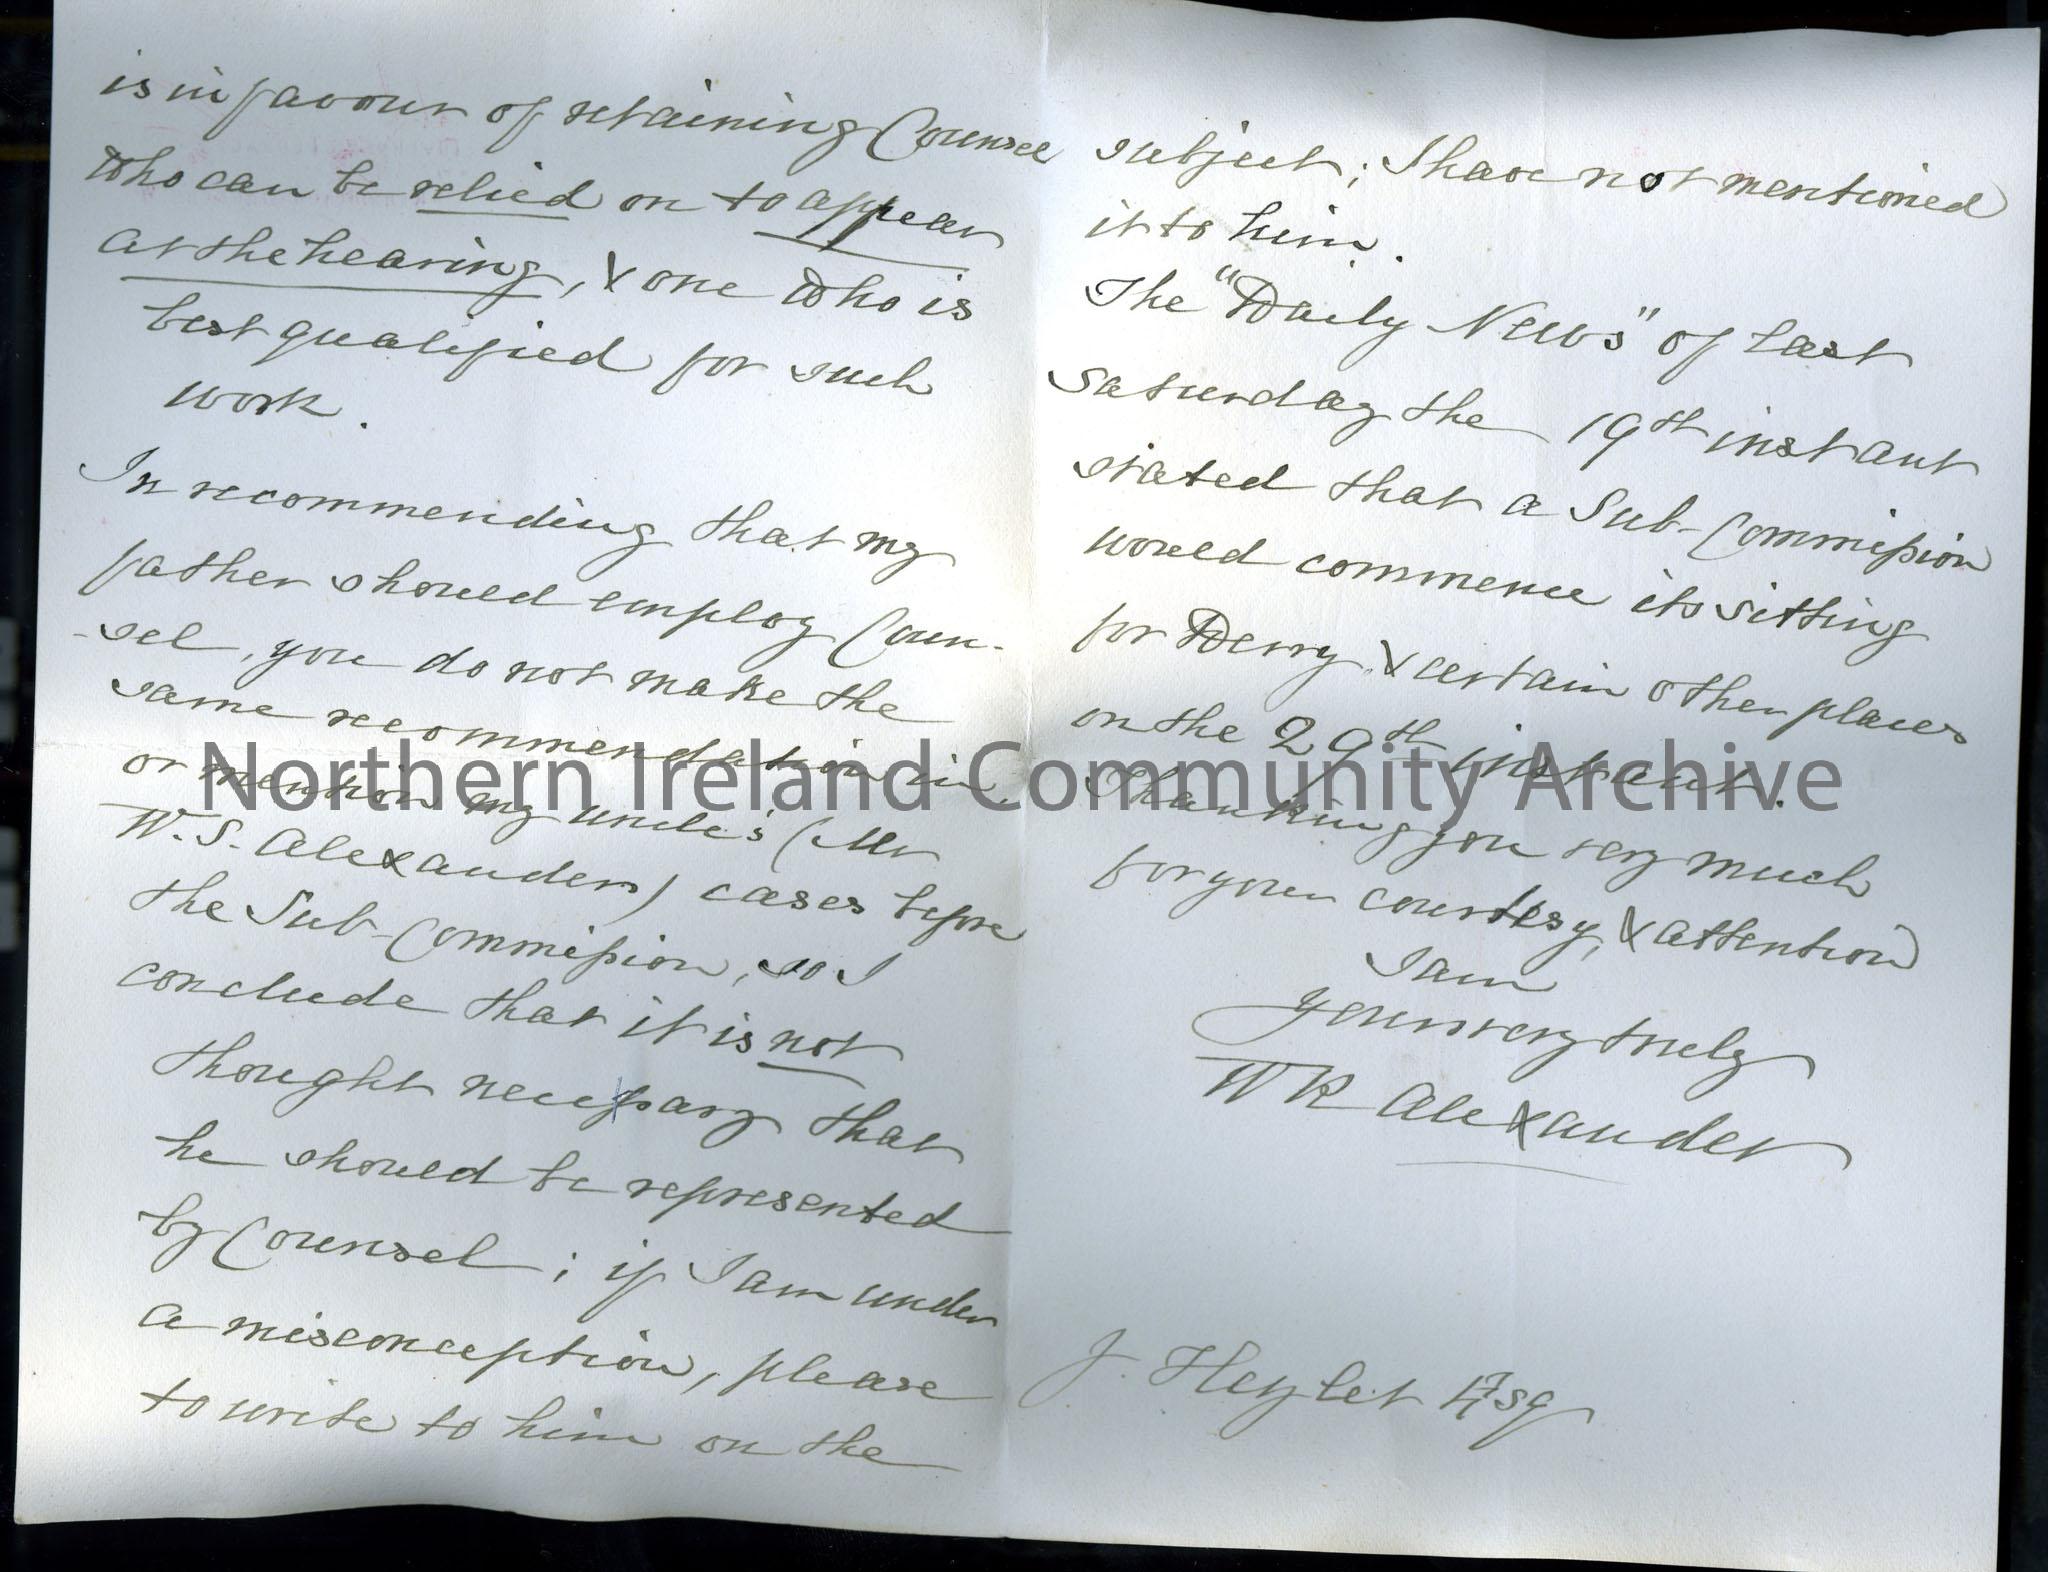 is in favour of retaining Counsel
who can be relied on to appear
at the hearing, & one who is
best qualified for such
work.
In recommending that my
father should employ Coun-
-sel, you do not make the
same recommendation in,
or mention my uncle's (Mr
W. S. Alexander) cases before
the Sub-Commission, so I
conclude that it is not
thought necessary that
he should be represented
by Counsel; if I am under
a misconception, please
to write to him on the
subject; I have not mentioned
it to him.
The "Daily News" of last
Saturday the 19th instant
stated that a Sub-Commission
would commence its sitting
for Derry & certain other places
on the 29th instant.
Thanking you very much
for your courtesy, & attention
I am
yours very truly
W R Alexander
J. Hezlet Esq
Northern Ireland Community Archive